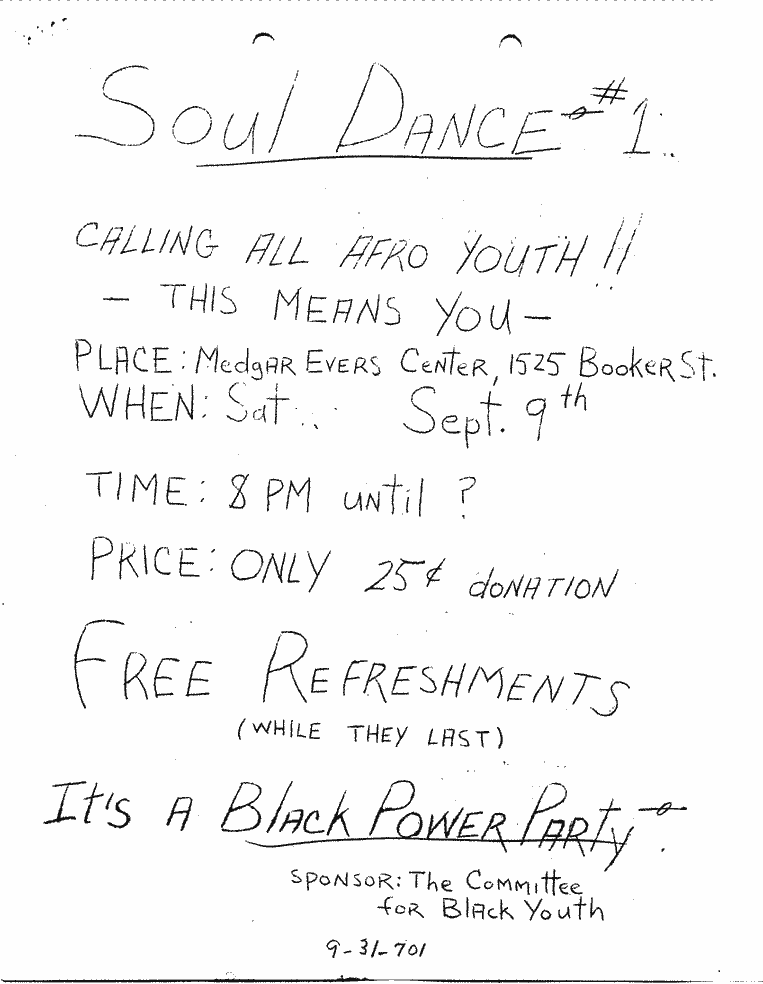 Soul Dance #1
CALLING ALL AFRO YOUTH!!
— THIS MEANS YOU —
PLACE: Medgar Evers Center, 1525 Booker St.
WHEN: Sat. Sept. 9th
TIME: 8 PM until ?
PRICE: ONLY 25¢ donation
FREE REFRESHMENTS
(WHILE THEY LAST)
It's A Black Power Party.
SPONSOR: The Committee
for Black Youth
9-31-701